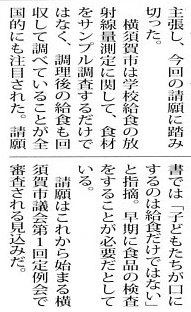 主張し、今回の請願に踏み
切った。
　横須賀市は学校給食の放
射線量測定に関して、食材
をサンプル調査するだけで
はなく、調理後の給食も回
収して調べていることが全
国的にも注目された。請願
書では「子どもたちが口に
するのは給食だけではない」
と指摘。早期に食品の検査
をすることが必要だとして
いる。
　請願はこれから始まる横
須賀市議会第１回定例会で
審査される見込みだ。